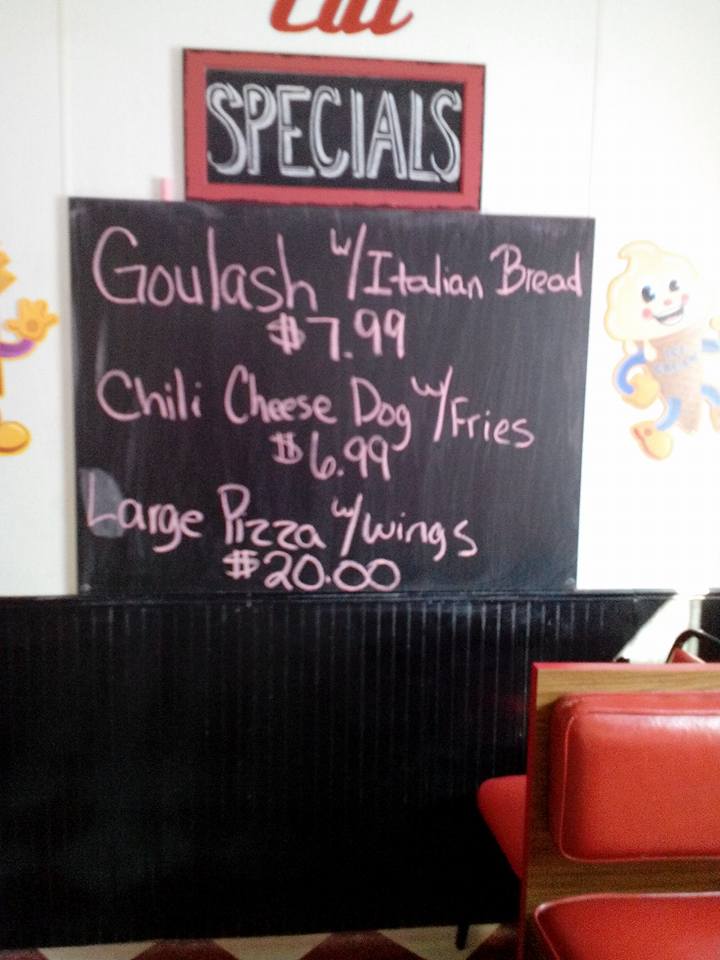 Eat
SPECIALS
Goulash w/Italian Bread
$7.99
Chili Cheese Dog w/Fries
$6.99
Large Pizza w/wings
$20.00
ICE
CREAM